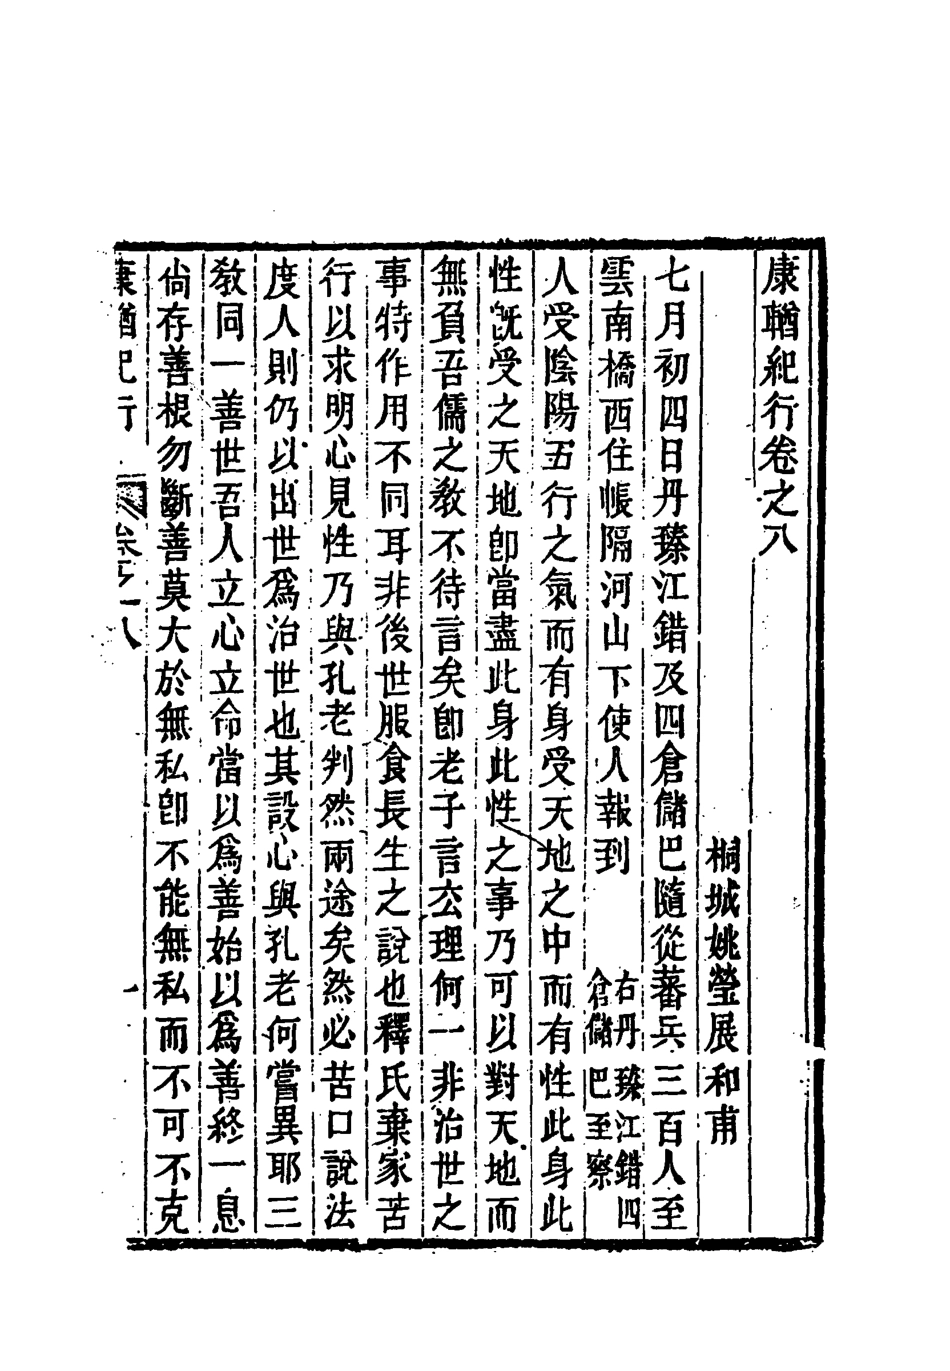 康輶紀行卷之八
桐城姚瑩展和甫
七月初四日丹臻江錯及四倉儲巴隨從蕃兵三百人至
雲南橋西住帳隔河山下使人報到 右丹臻江錯四倉儲巴至察
人受陰陽五行之氣而有身受天地之中而有性此身此
性旣受之天地卽當盡此身此性之事乃可以對天地而
無負吾儒之敎不待言矣卽老子言玄理何一非治世之
事特作用不同耳非後世服食長生之說也釋氏棄家苦
行以求明心見性乃與孔老判然兩途矣然必苦口說法
度人則仍以出世爲治世也其設心與孔老何嘗異耶三
敎同一善世吾人立心立命當以爲善始以爲善終一息
尙存善根勿斷善莫大於無私卽不能無私而不可不克
康輶紀行 卷之八 一